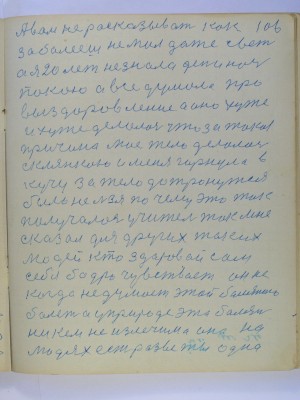 Я вам не расказыват как 106
заболееш не мил даже свет
а я 20 лет не знала дени ноч
покою а все думала про
выздоровление а оно хуже
и хуже делолос что за такая
причина мое тело делолос
склянкою и меня гарнула в
кучу за тело дотронутся
было нелзя почему это так
получалос учител так мне
сказал для других таких
людей кто здоровай сам
себя бодро чувствает он не
когда не думает этой
болет а у природе эта болезн
ни кем не излечима она на
людях есть разве ты одна